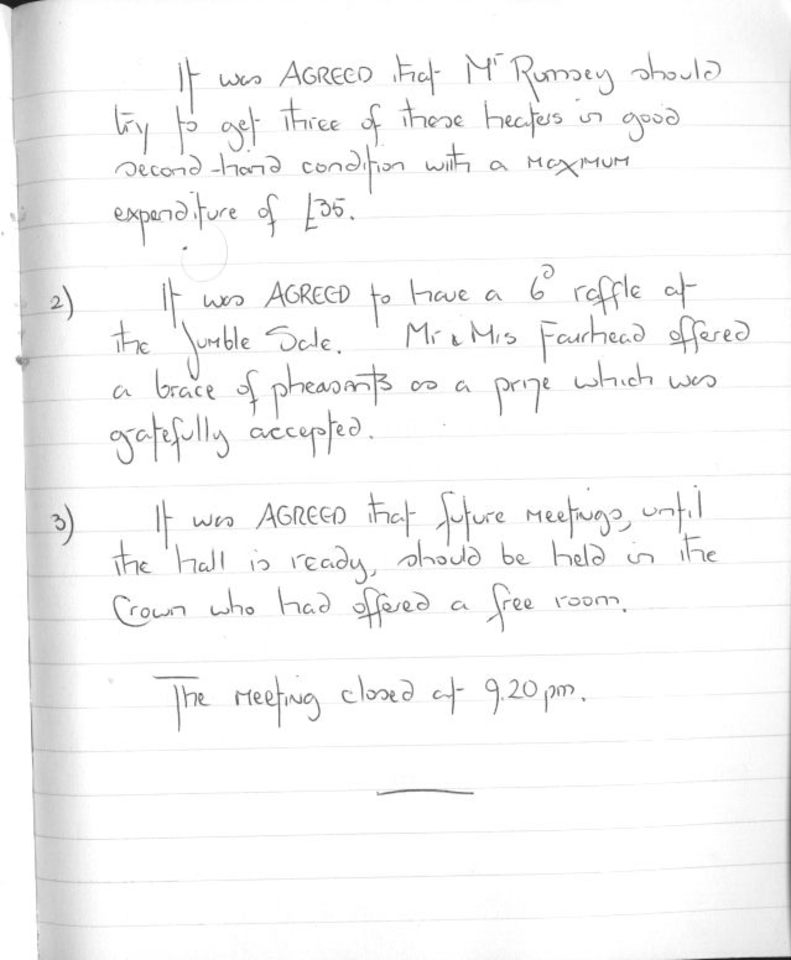 It was AGREED that Mr Rumsey should
try to get three of these heaters in good
second-hand condition with a maximum
expenditure of £35.
2) It was AGREED to have a 6d raffle at
the Jumble Sale. Mr & Mrs Fairhead offered
a brace of pheasants as a prize which was
gratefully accepted.
3) It was AGREED that future meetings, until
the hall is ready, should be held in the
Crown who had offered a free room.
The meeting closed at 9.20 pm.